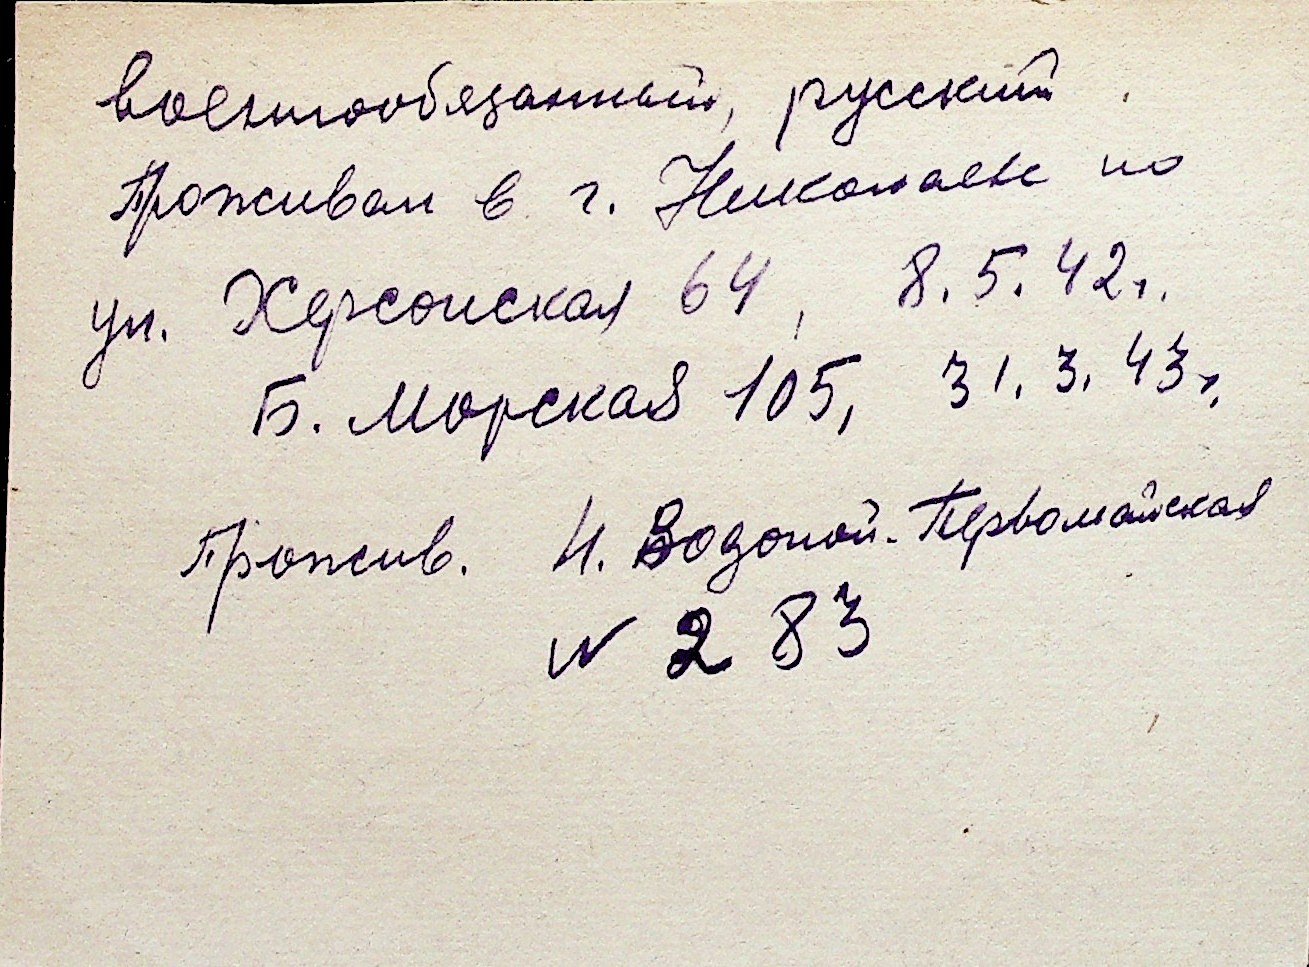 военнообязанный, русский.
Проживал в г. Николаеве по
ул. Херсонская 64, 8.5.42г.
Б. Морская 105, 31.3.43г.
Прожив. Н. Водопой - Первомайская
№ 283